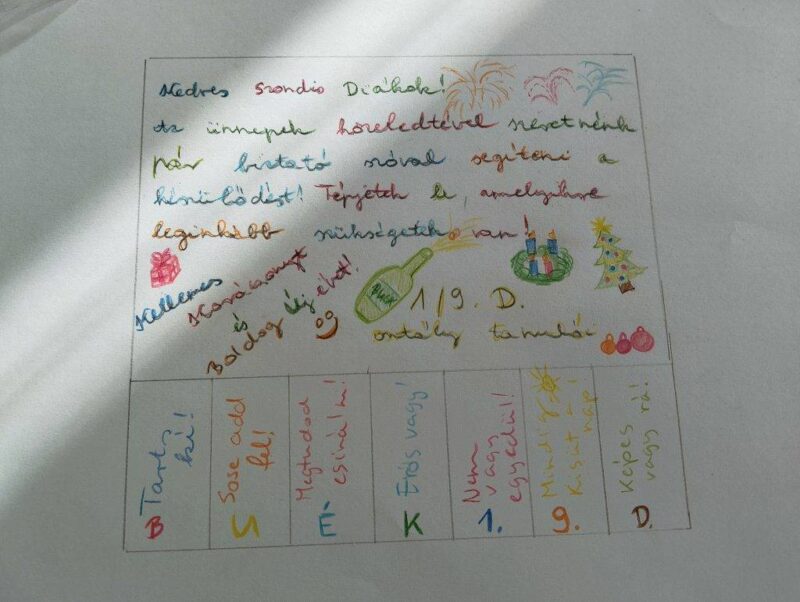 Kedves Szondis Diákok!
Az ünnepek közeledtével szeretnénk
pár biztató szóval segíteni a
készülődést! Tépjétek le, amelyikre
leginkább szükségetek van!
Kellemes
Karácsonyt
és
Boldog Új évet!
1/9. D.
osztály tanulói
Tarts
ki!
Sose add
fel!
Megtudod
csinálni!
Erős vagy!
Nem
vagy
egyedül!
Mindig
kisüt a
nap!
Képes
vagy rá!
B S É K 1. 9. D.